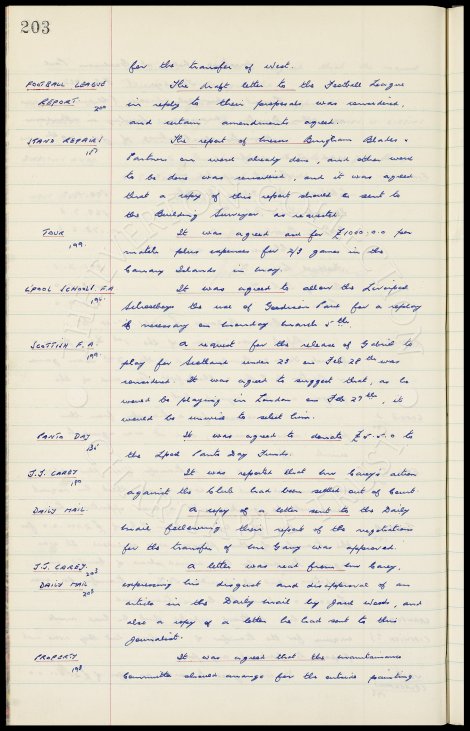 203
for the transfer of West.
FOOTBALL LEAGUE The draft letter to the Football League
REPORT 200 in reply to their proposals was considered,
and certain amendments agreed.
STAND REPAIRS The report of Messrs Bingham Blades &
187 Partners on work already done, and other work
to be done was considered, and it was agreed
that a copy of this report should be sent to
the Building Surveyor as requested.
TOUR It was agreed to ask for £1000.0.0 per
199 match plus expenses for 2/3 games in the
Canary Islands in May.
L'POOL SCHOOLS F.A It was agreed to allow the Liverpool
Schoolboys the use of Goodison Park for a replay
if necessary on Monday March 5th.
SCOTTISH F.A. A request for the release of Gabriel to
199 play for Scotland under 23 on Feb 28th was
considered. It was agreed to suggest that, as he
would be playing in London on Feb 27th, it
would be unwise to select him.
PANTO DAY It was agreed to donate £5.5.0 to
the Lpool Panto Day Funds.
J.J. CAREY It was reported that Mr Carey's action
180 against the Club had been settled out of Court.
DAILY MAIL. A copy of a letter sent to the Daily
Mail following their report of the negotiations
for the transfer of Mr Gary was approved.
J.J. CAREY. 203 A letter was read from Mr Carey,
DAILY MAIL expressing his disgust and disapproval of an
203 article in the Daily Mail by Jack Wood, and
also a copy of a letter he had sent to this
Journalist.
PROPERTY It was agreed that the Maintenance
198 Committee should arrange for the outside painting